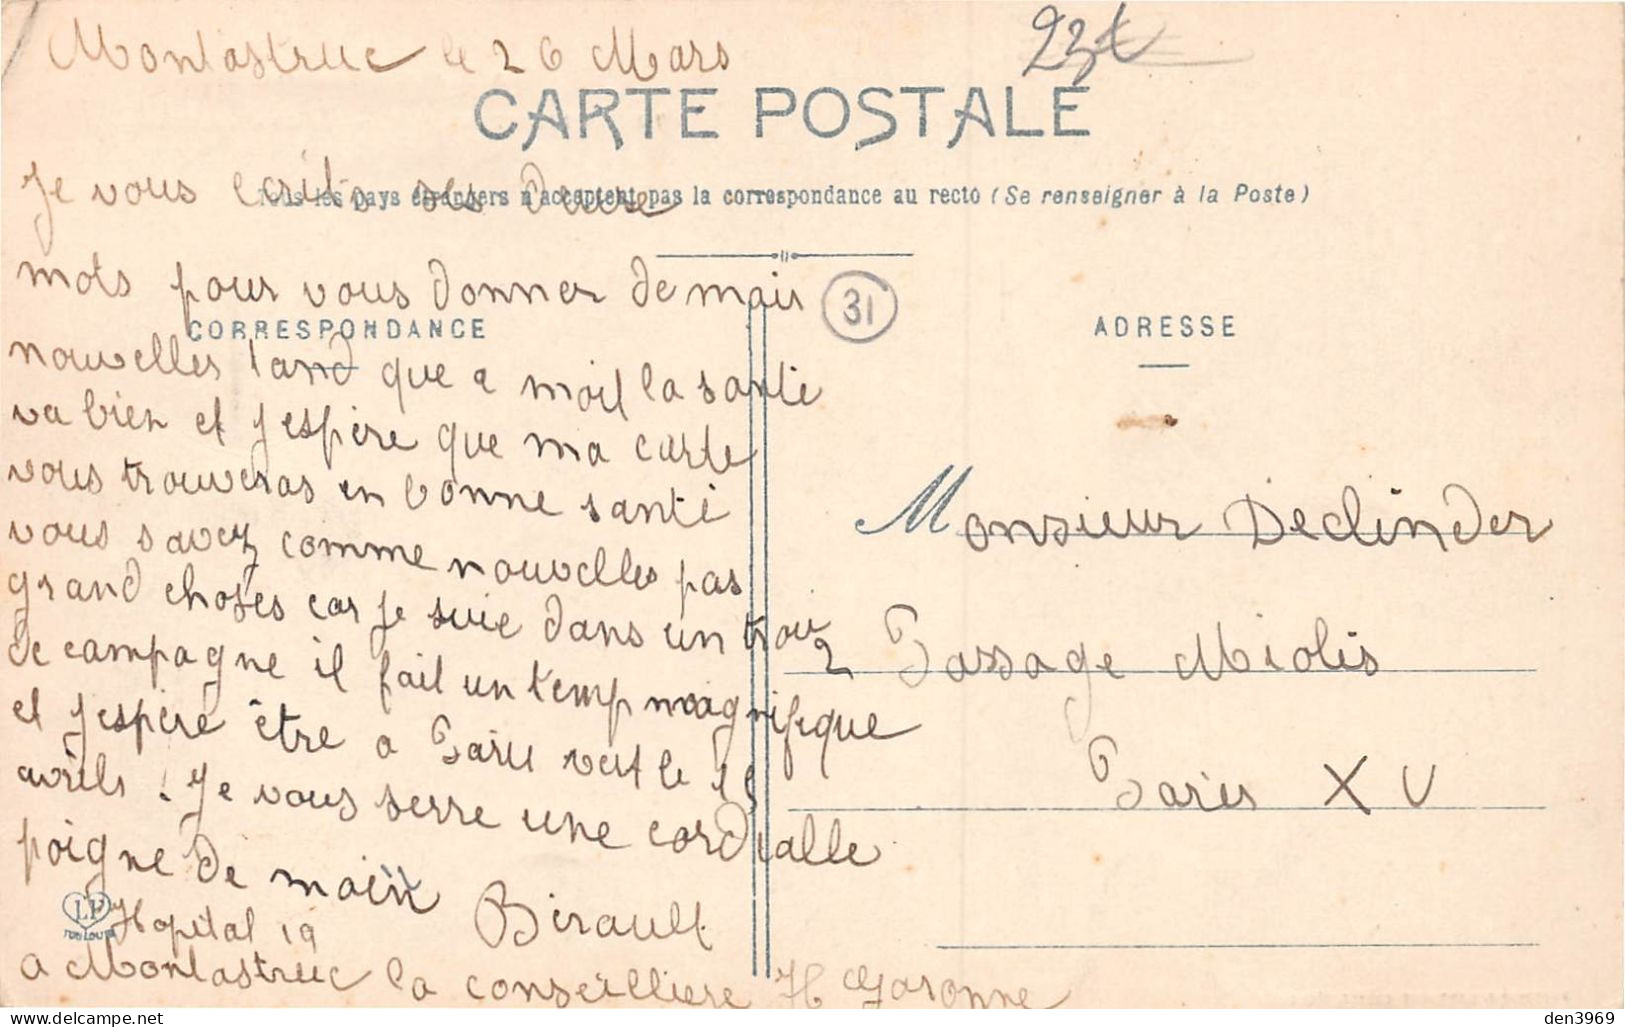 Montastruc le 26 Mars
23t
CARTE POSTALE
Tous les pays étrangers n'acceptent pas la correspondance au recto (Se renseigner à la Poste)
Je vous ecrit ses deux
mots pour vous donner de mais
CORRESPONDANCE
nouvelles tand que a moil la santé
va bien et jespère que ma carte
vous trouveras en bonne santé
vous savez comme nouvelles pas
grand choses car je suie dans un trou
de campagne il fait un temp magnifique
et jespère être a Paris vert le 15
avrils. Je vous serre une cordialle
poigne de main
Birault
Hopital 19
a Montastruc la conseilliere H Garonne
LF
TOULOUSE
31
ADRESSE
Monsieur Declinder
2 Passage Miolis
Paris XV
den3969